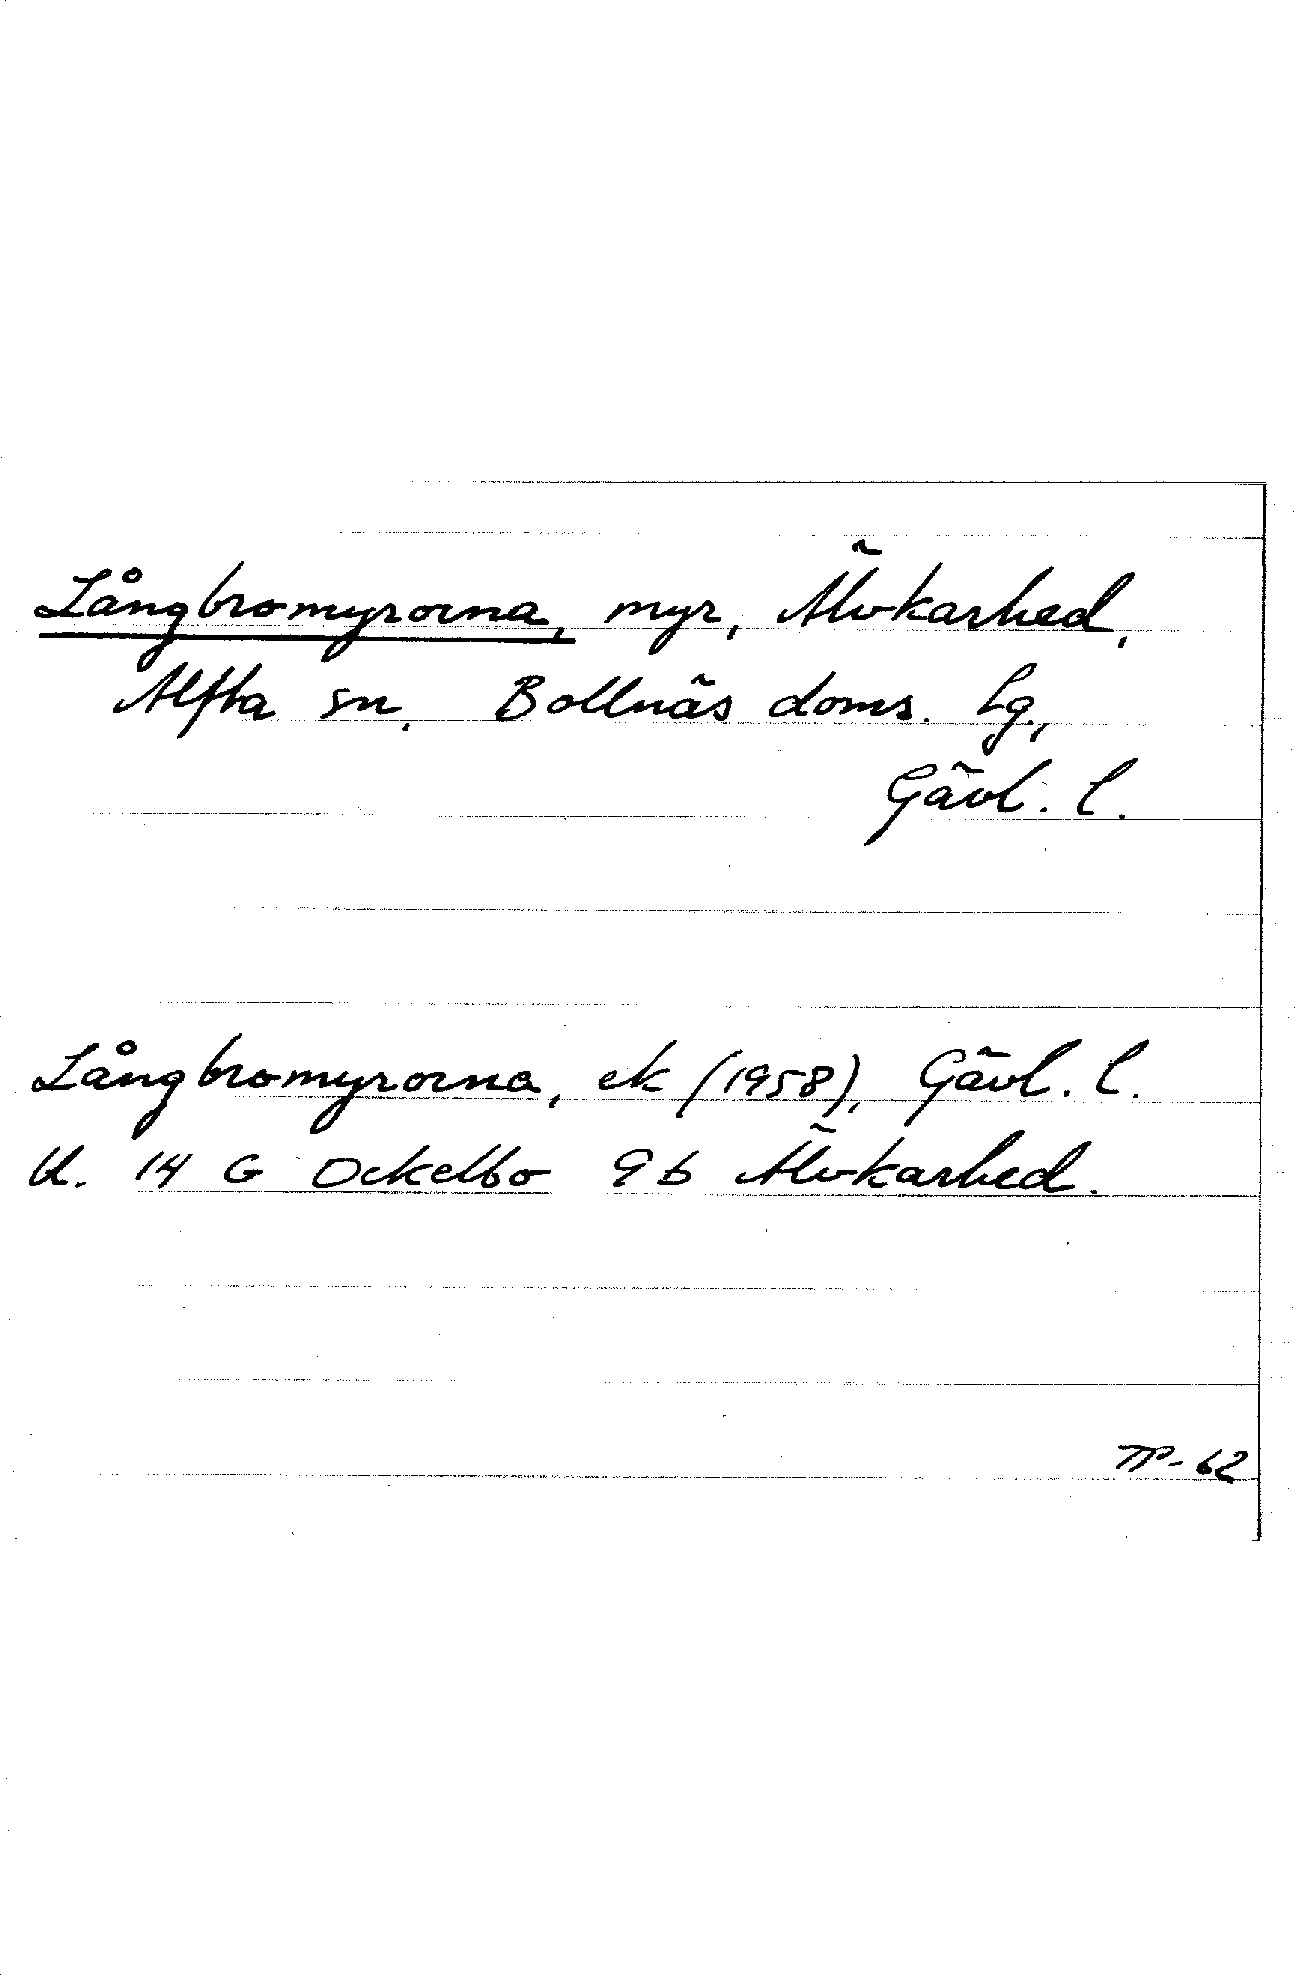 Långbromyrorna, myr, Älvkarhed,
Alfta sn, Bollnäs doms. lg,
Gävl. l.
Långbromyrorna, ek (1958), Gävl. l.
U. 14 G Ockelbo 9 b Älvkarhed.
TP-62